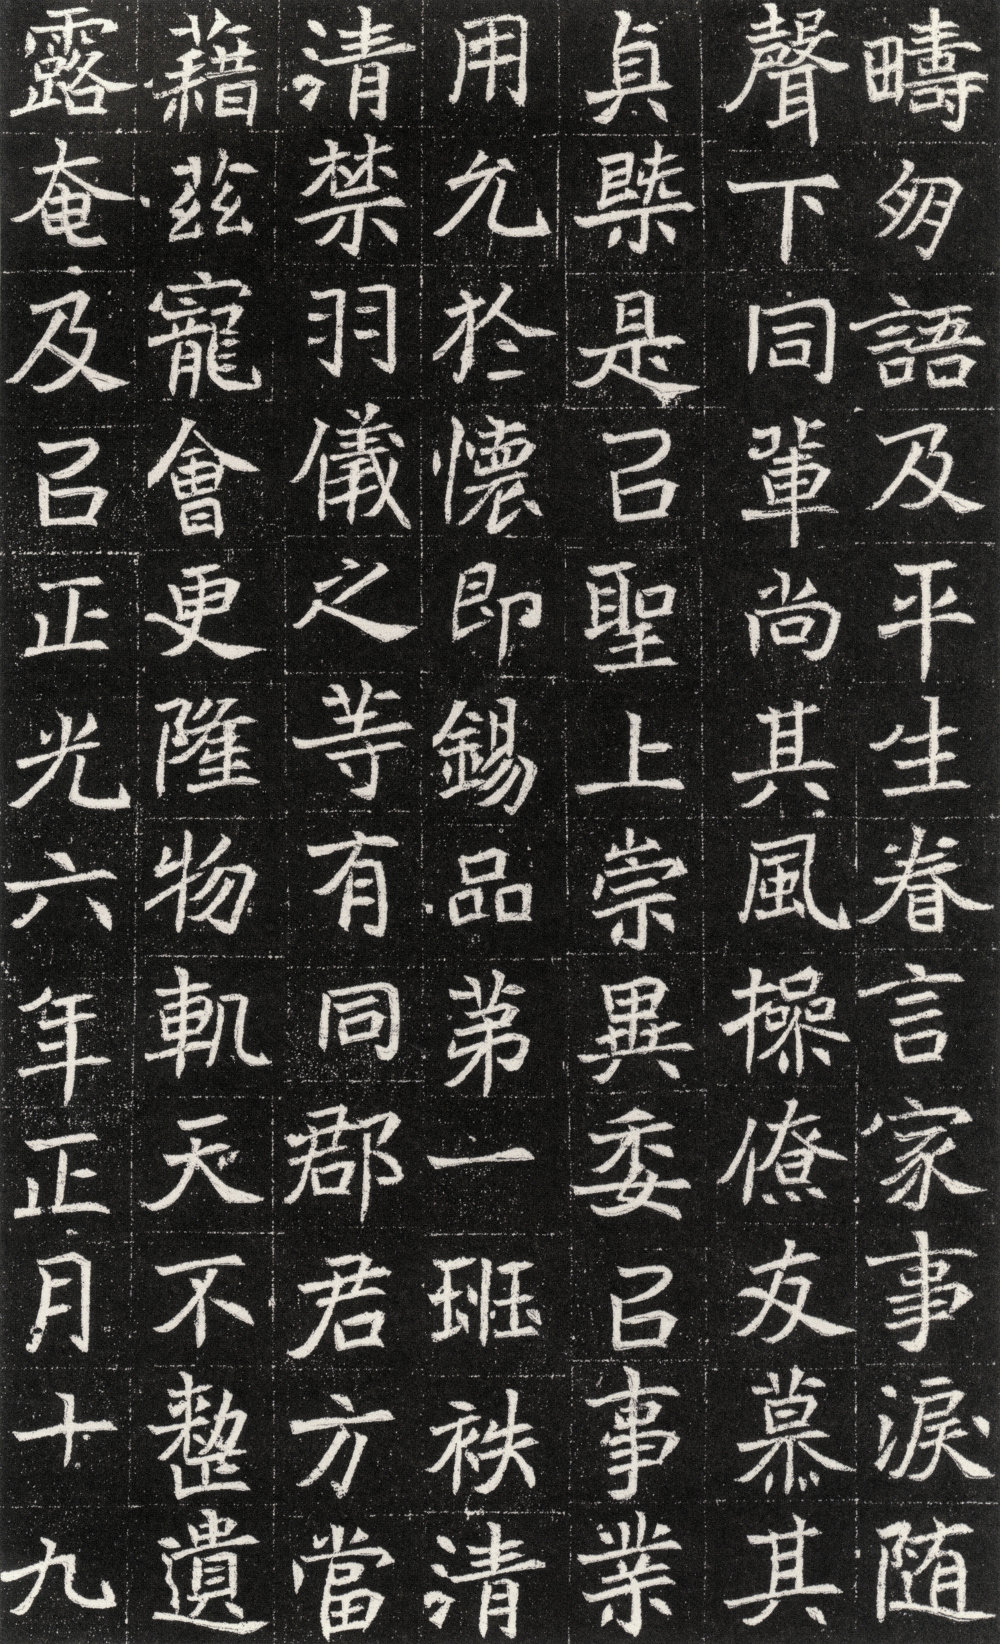 疇匆語及平生眷言家事淚随
聲下同輩尚其風操僚友慕其
貞槩是㠯聖上崇異委㠯事業
用允於懷即錫品苐一班秩清
清禁羽儀之等有同郡君方當
藉茲寵會更隆物軌天不整遺
露奄及㠯正光六年正月十九